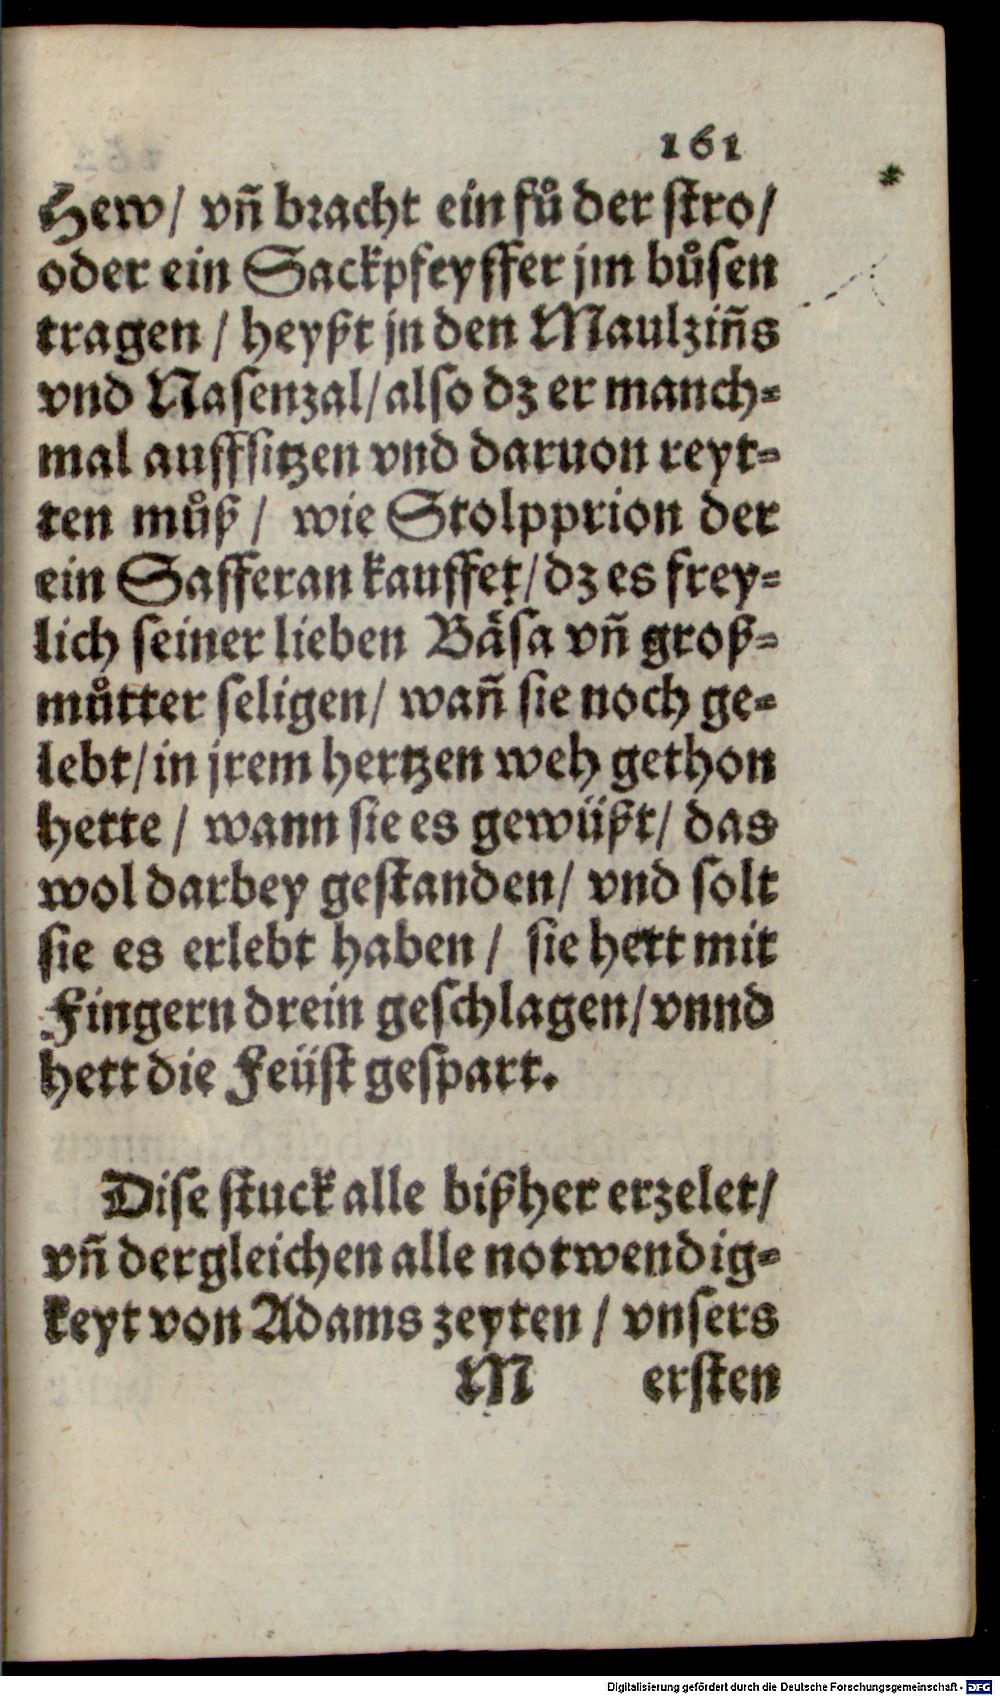 161
Hew/ vñ bracht ein fůder stro/
oder ein Sackpfeyffer jm bůsen
tragen / heyßt jn den Maulziñs
vnd Nasenzal/also dz er manch-
mal auffsitzen vnd daruon reyt-
ten můß / wie Stolpprion der
ein Safferan kauffet/dz es frey-
lich seiner lieben Bäsa vñ groß-
můtter seligen/ wañ sie noch ge-
lebt/in jrem hertzen weh gethon
hette / wann sie es gewüßt/ das
wol darbey gestanden/ vnd solt
sie es erlebt haben / sie hett mit
Fingern drein geschlagen/vnnd
hett die Feüst gespart.
Dise stuck alle bißher erzelet/
vñ dergleichen alle notwendig-
keyt von Adams zeyten / vnsers
M ersten
Digitalisierung gefördert durch die Deutsche Forschungsgemeinschaft - DFG